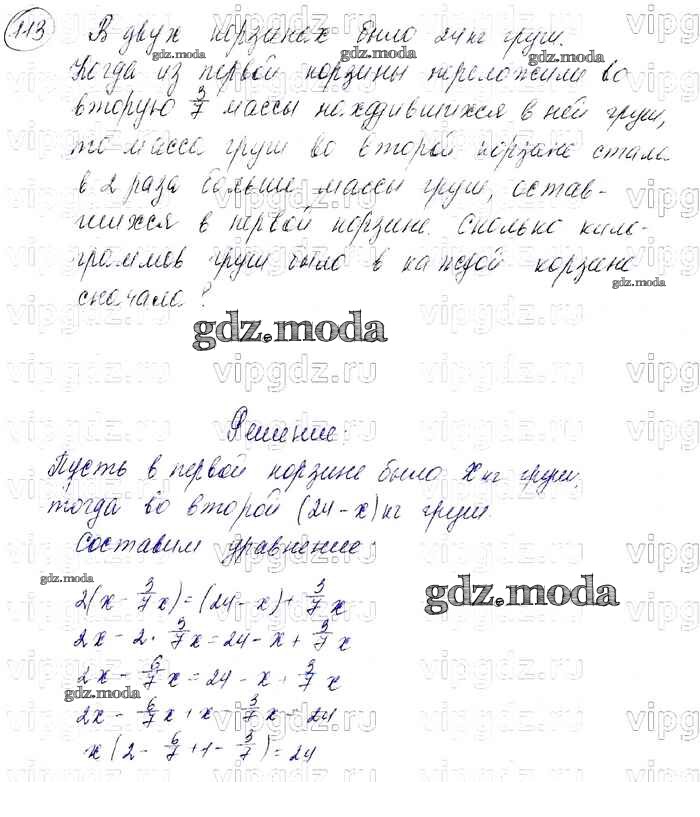 113 В двух корзинах было 24 кг груш.
Когда из первой корзины переложили во
вторую 3/7 массы находившихся в ней груш,
то масса груш во второй корзине стала
в 2 раза больше массы груш, остав-
шихся в первой корзине. Сколько кило-
граммов груш было в каждой корзине
сначала?
gdz.moda
vipgdz.ru
Решение:
Пусть в первой корзине было x кг груш,
тогда во второй (24-x) кг груш
Составим уравнение:
2(x - 3/7 x) = (24 - x) + 3/7 x
2x - 2 · 3/7 x = 24 - x + 3/7 x
2x - 6/7 x = 24 - x + 3/7 x
2x - 6/7 x + x - 3/7 x = 24
x(2 - 6/7 + 1 - 3/7) = 24
gdz.moda
vipgdz.ru